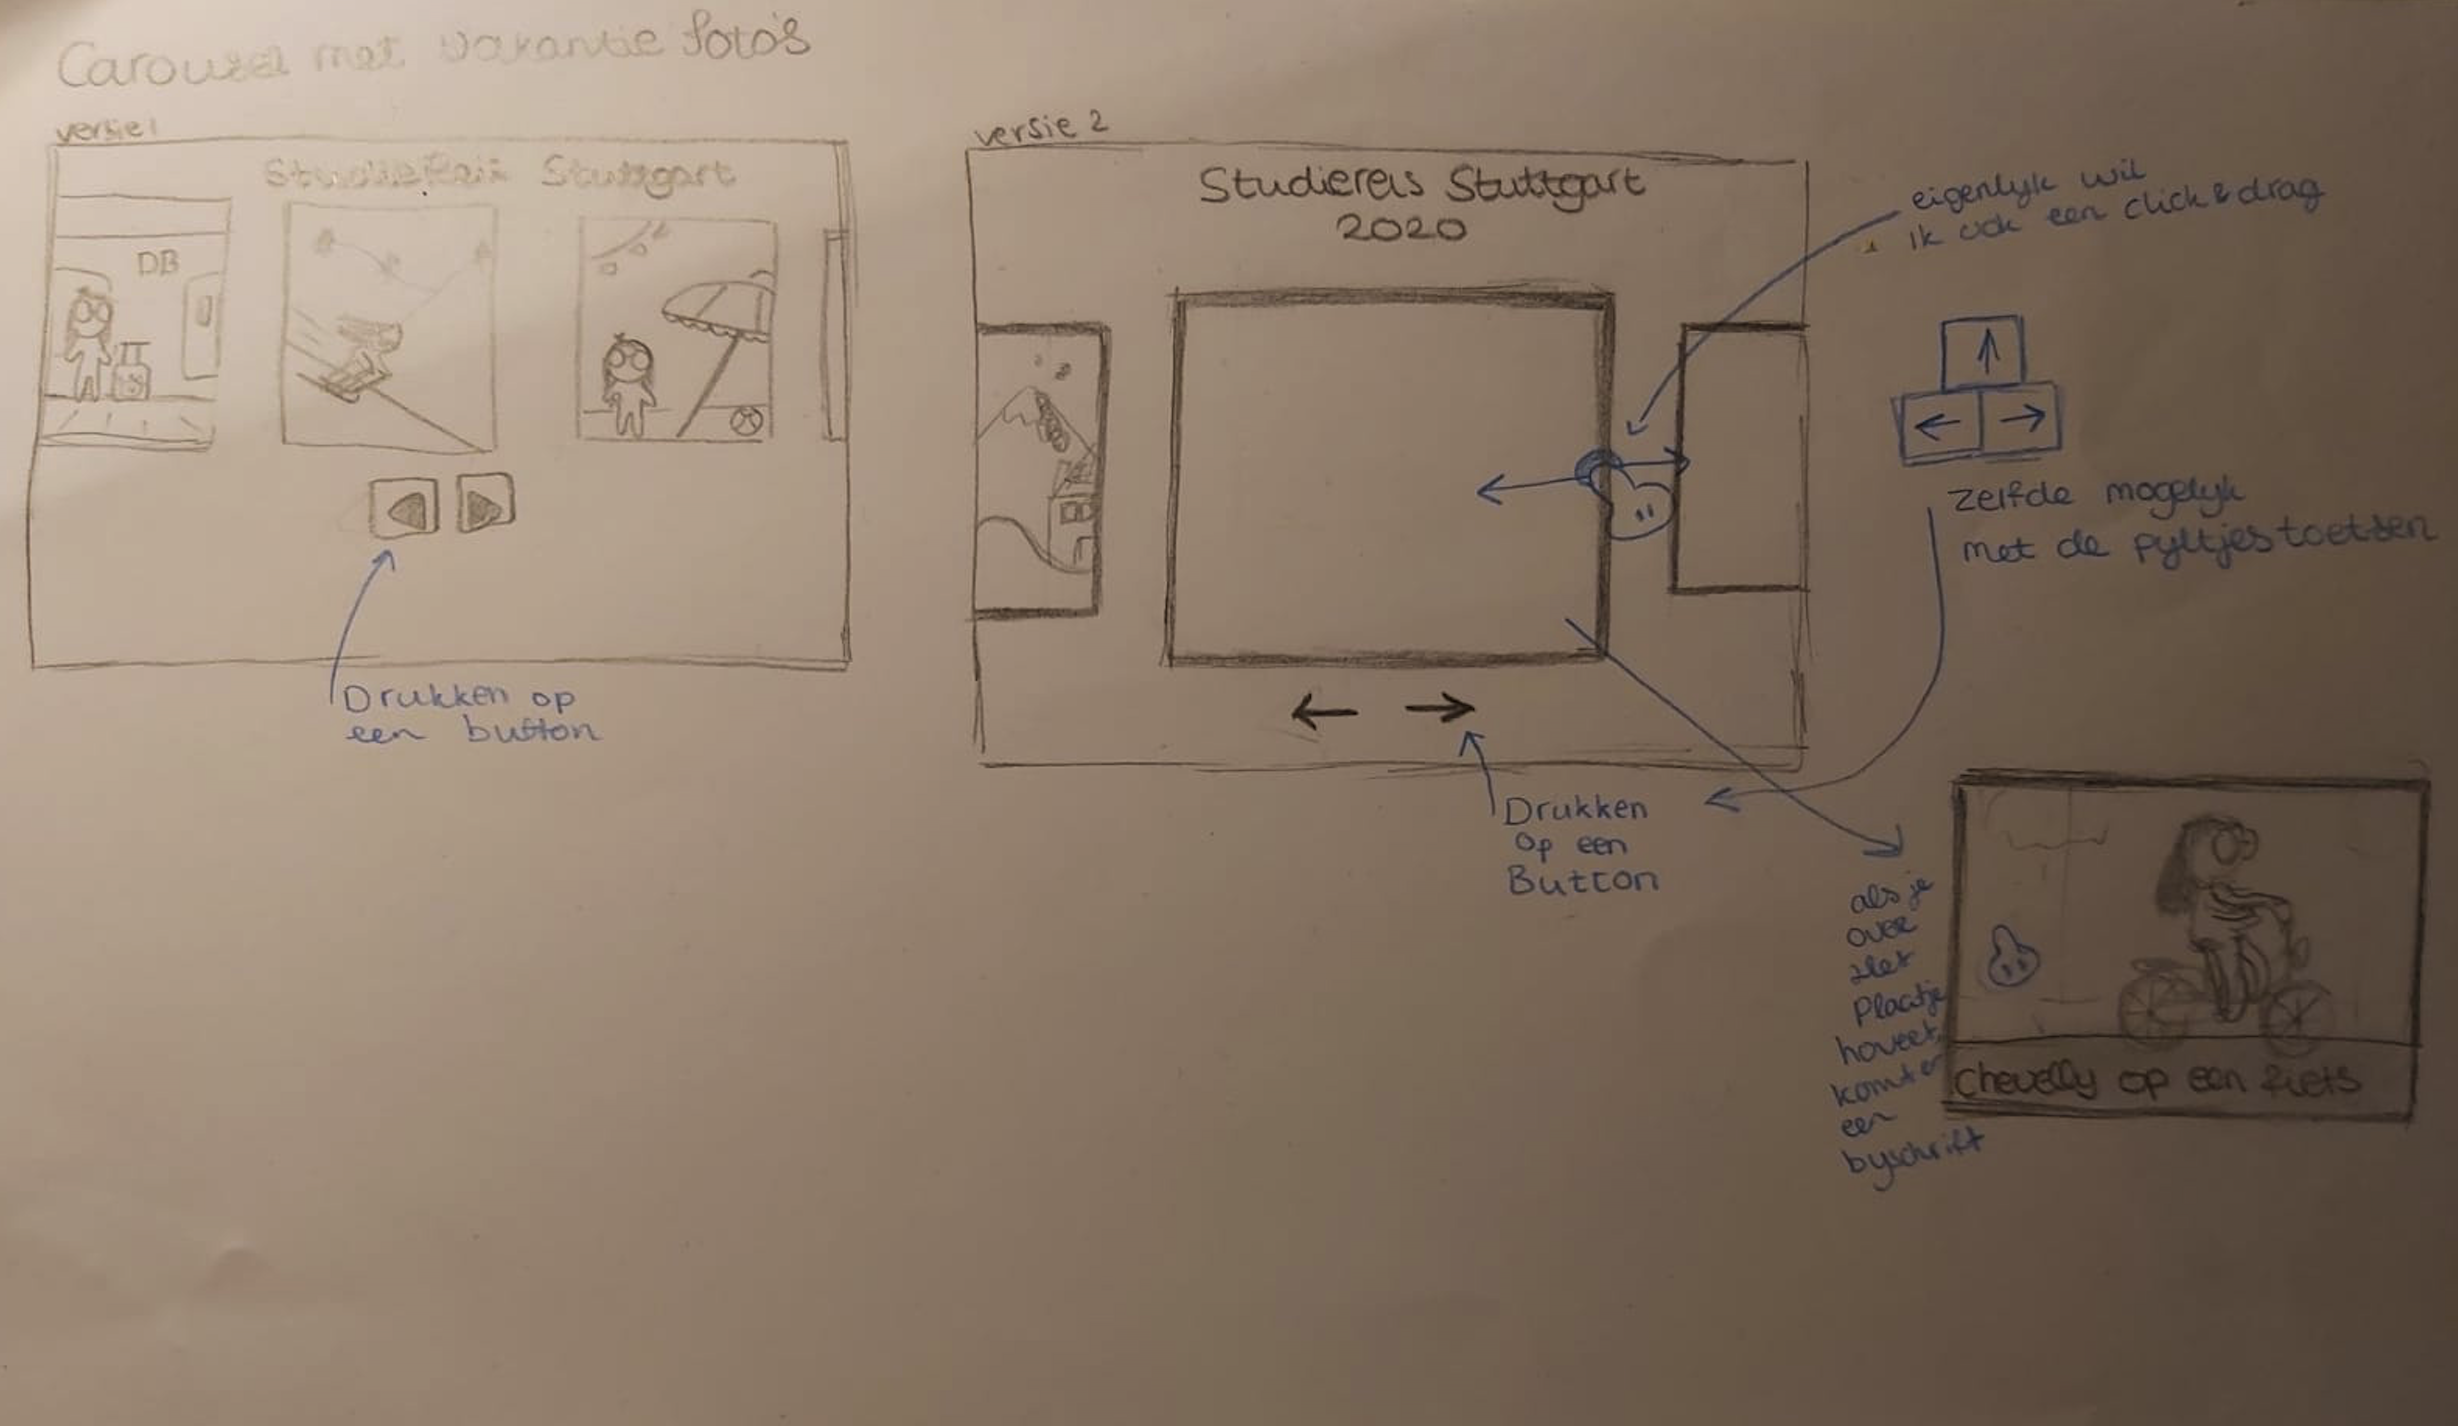 Carousel met vakantie foto's
versie 1
StudieReis Stuttgart
DB
Drukken op
een button
versie 2
Studiereis Stuttgart
2020
eigenlijk wil
ik ook een click & drag
zelfde mogelijk
met de pyltjestoetsen
Drukken
op een
Button
als je
over
het
Plaatje
hovert
komt er
een
byschrift
chevelly op een fiets